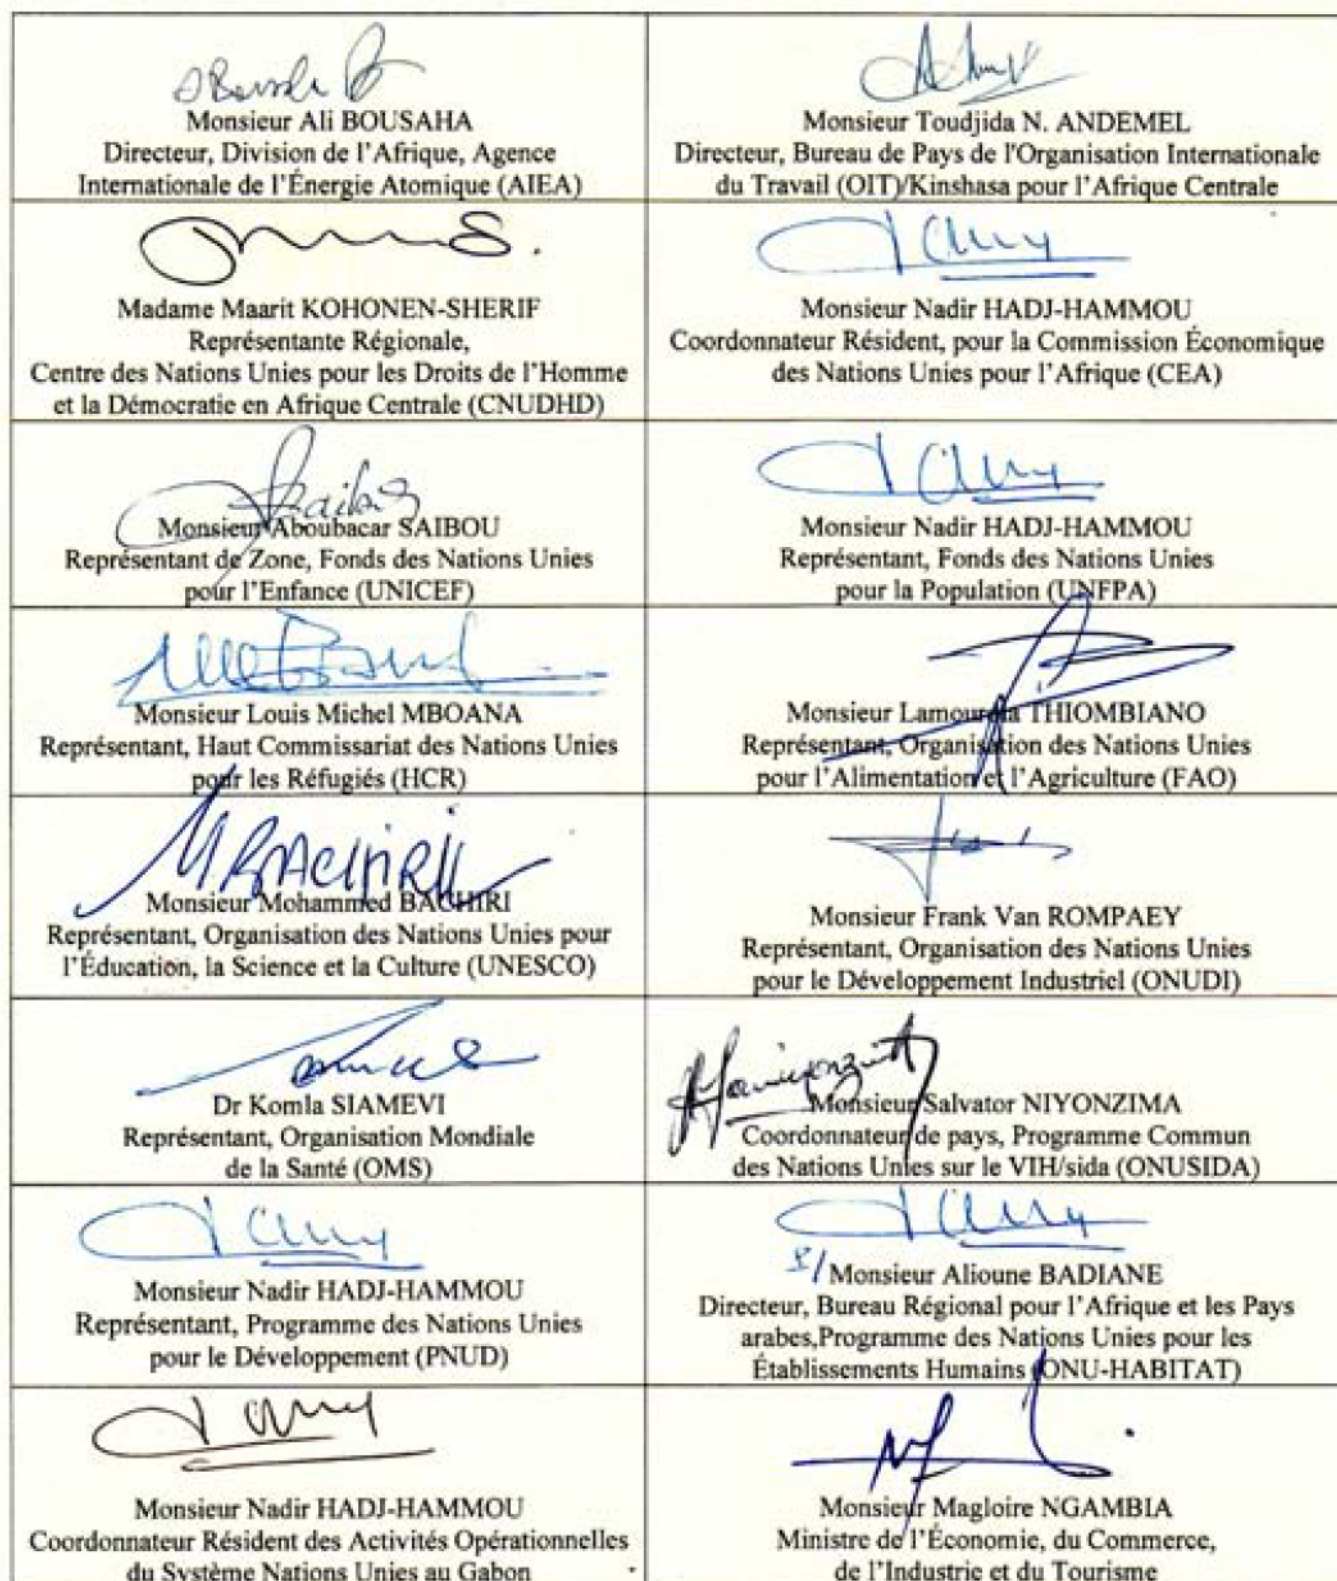 Monsieur Ali BOUSAHA
Directeur, Division de l'Afrique, Agence
Internationale de l'Énergie Atomique (AIEA)
Monsieur Toudjida N. ANDEMEL
Directeur, Bureau de Pays de l'Organisation Internationale
du Travail (OIT)/Kinshasa pour l'Afrique Centrale
Madame Maarit KOHONEN-SHERIF
Représentante Régionale,
Centre des Nations Unies pour les Droits de l'Homme
et la Démocratie en Afrique Centrale (CNUDHD)
Monsieur Nadir HADJ-HAMMOU
Coordonnateur Résident, pour la Commission Économique
des Nations Unies pour l'Afrique (CEA)
Monsieur Aboubacar SAIBOU
Représentant de Zone, Fonds des Nations Unies
pour l'Enfance (UNICEF)
Monsieur Nadir HADJ-HAMMOU
Représentant, Fonds des Nations Unies
pour la Population (UNFPA)
Monsieur Louis Michel MBOANA
Représentant, Haut Commissariat des Nations Unies
pour les Réfugiés (HCR)
Monsieur THIOMBIANO
Représentant, Organisation des Nations Unies
pour l'Alimentation et l'Agriculture (FAO)
M BACHIRI
Monsieur Mohammed BACHIRI
Représentant, Organisation des Nations Unies pour
l'Éducation, la Science et la Culture (UNESCO)
Monsieur Frank Van ROMPAEY
Représentant, Organisation des Nations Unies
pour le Développement Industriel (ONUDI)
Dr Komla SIAMEVI
Représentant, Organisation Mondiale
de la Santé (OMS)
Monsieur Salvator NIYONZIMA
Coordonnateur de pays, Programme Commun
des Nations Unies sur le VIH/sida (ONUSIDA)
Monsieur Nadir HADJ-HAMMOU
Représentant, Programme des Nations Unies
pour le Développement (PNUD)
Monsieur Alioune BADIANE
Directeur, Bureau Régional pour l'Afrique et les Pays
arabes,Programme des Nations Unies pour les
Établissements Humains (ONU-HABITAT)
Monsieur Nadir HADJ-HAMMOU
Coordonnateur Résident des Activités Opérationnelles
du Système Nations Unies au Gabon
Monsieur Magloire NGAMBIA
Ministre de l'Économie, du Commerce,
de l'Industrie et du Tourisme